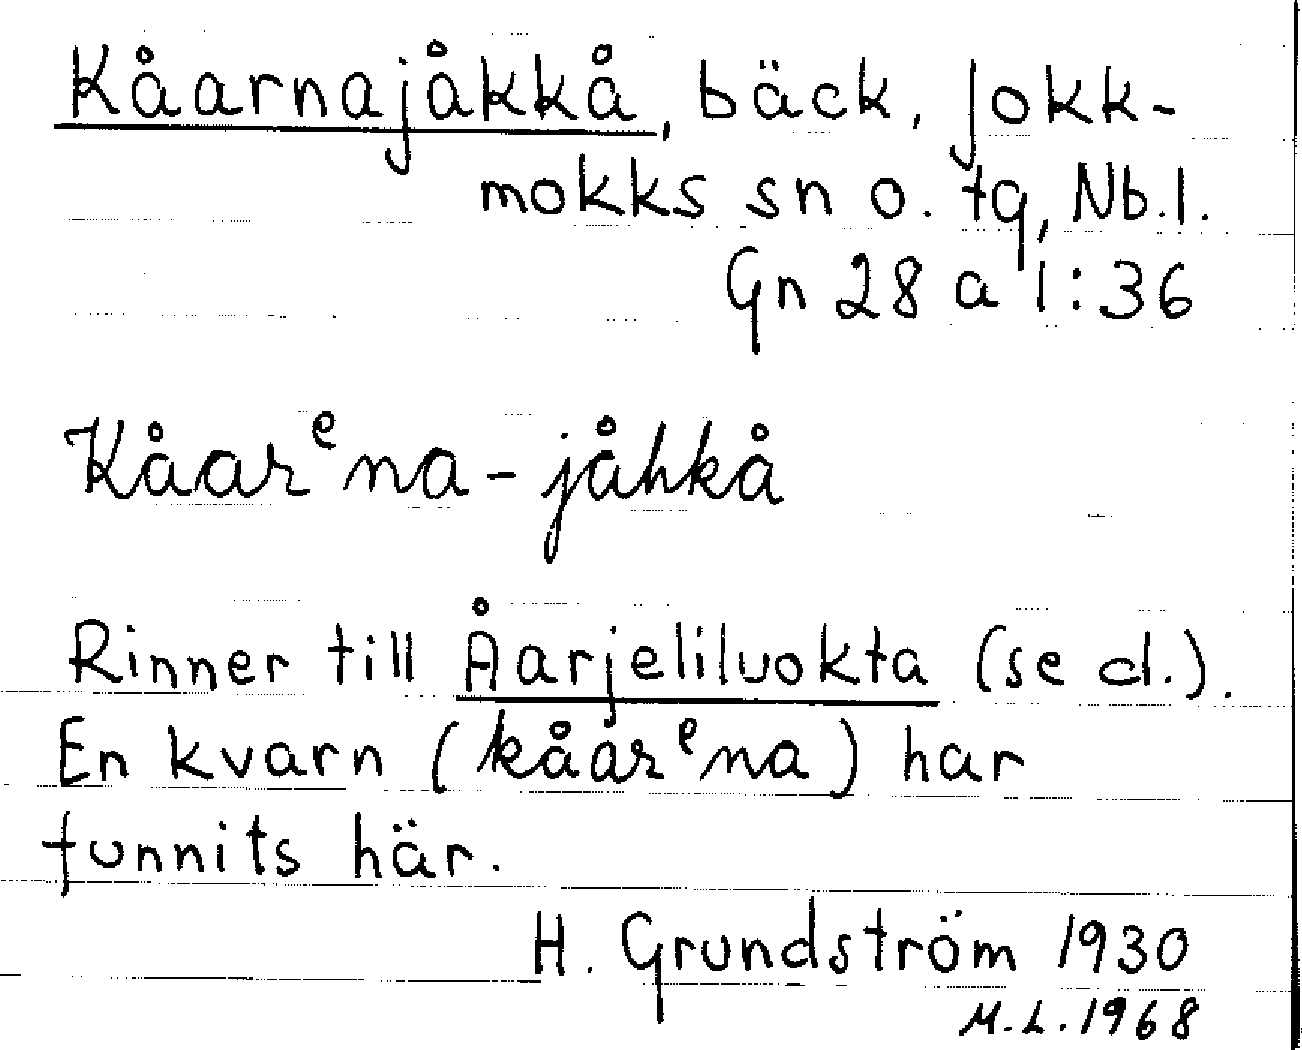 Kåarnajåkkå, bäck, Jokk-
mokks sn o. tg, Nb.l.
Gn 28 a 1:36
Kåarᵉna-jåhkå
Rinner till Åarjeliluokta (se d.).
En kvarn (kåarᵉna) har
funnits här.
H. Grundström 1930
M.L. 1968